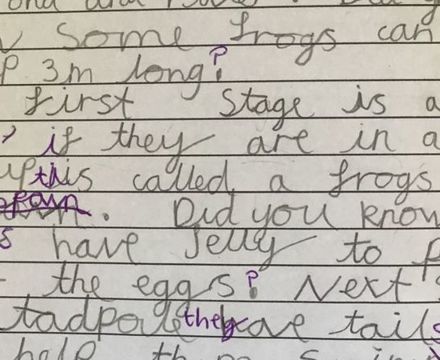 Some frogs can
3m long?
first stage is a
if they are in a
this called a frogs
. Did you know
have Jelly to
the eggs? Next
tadpole they have tails
help